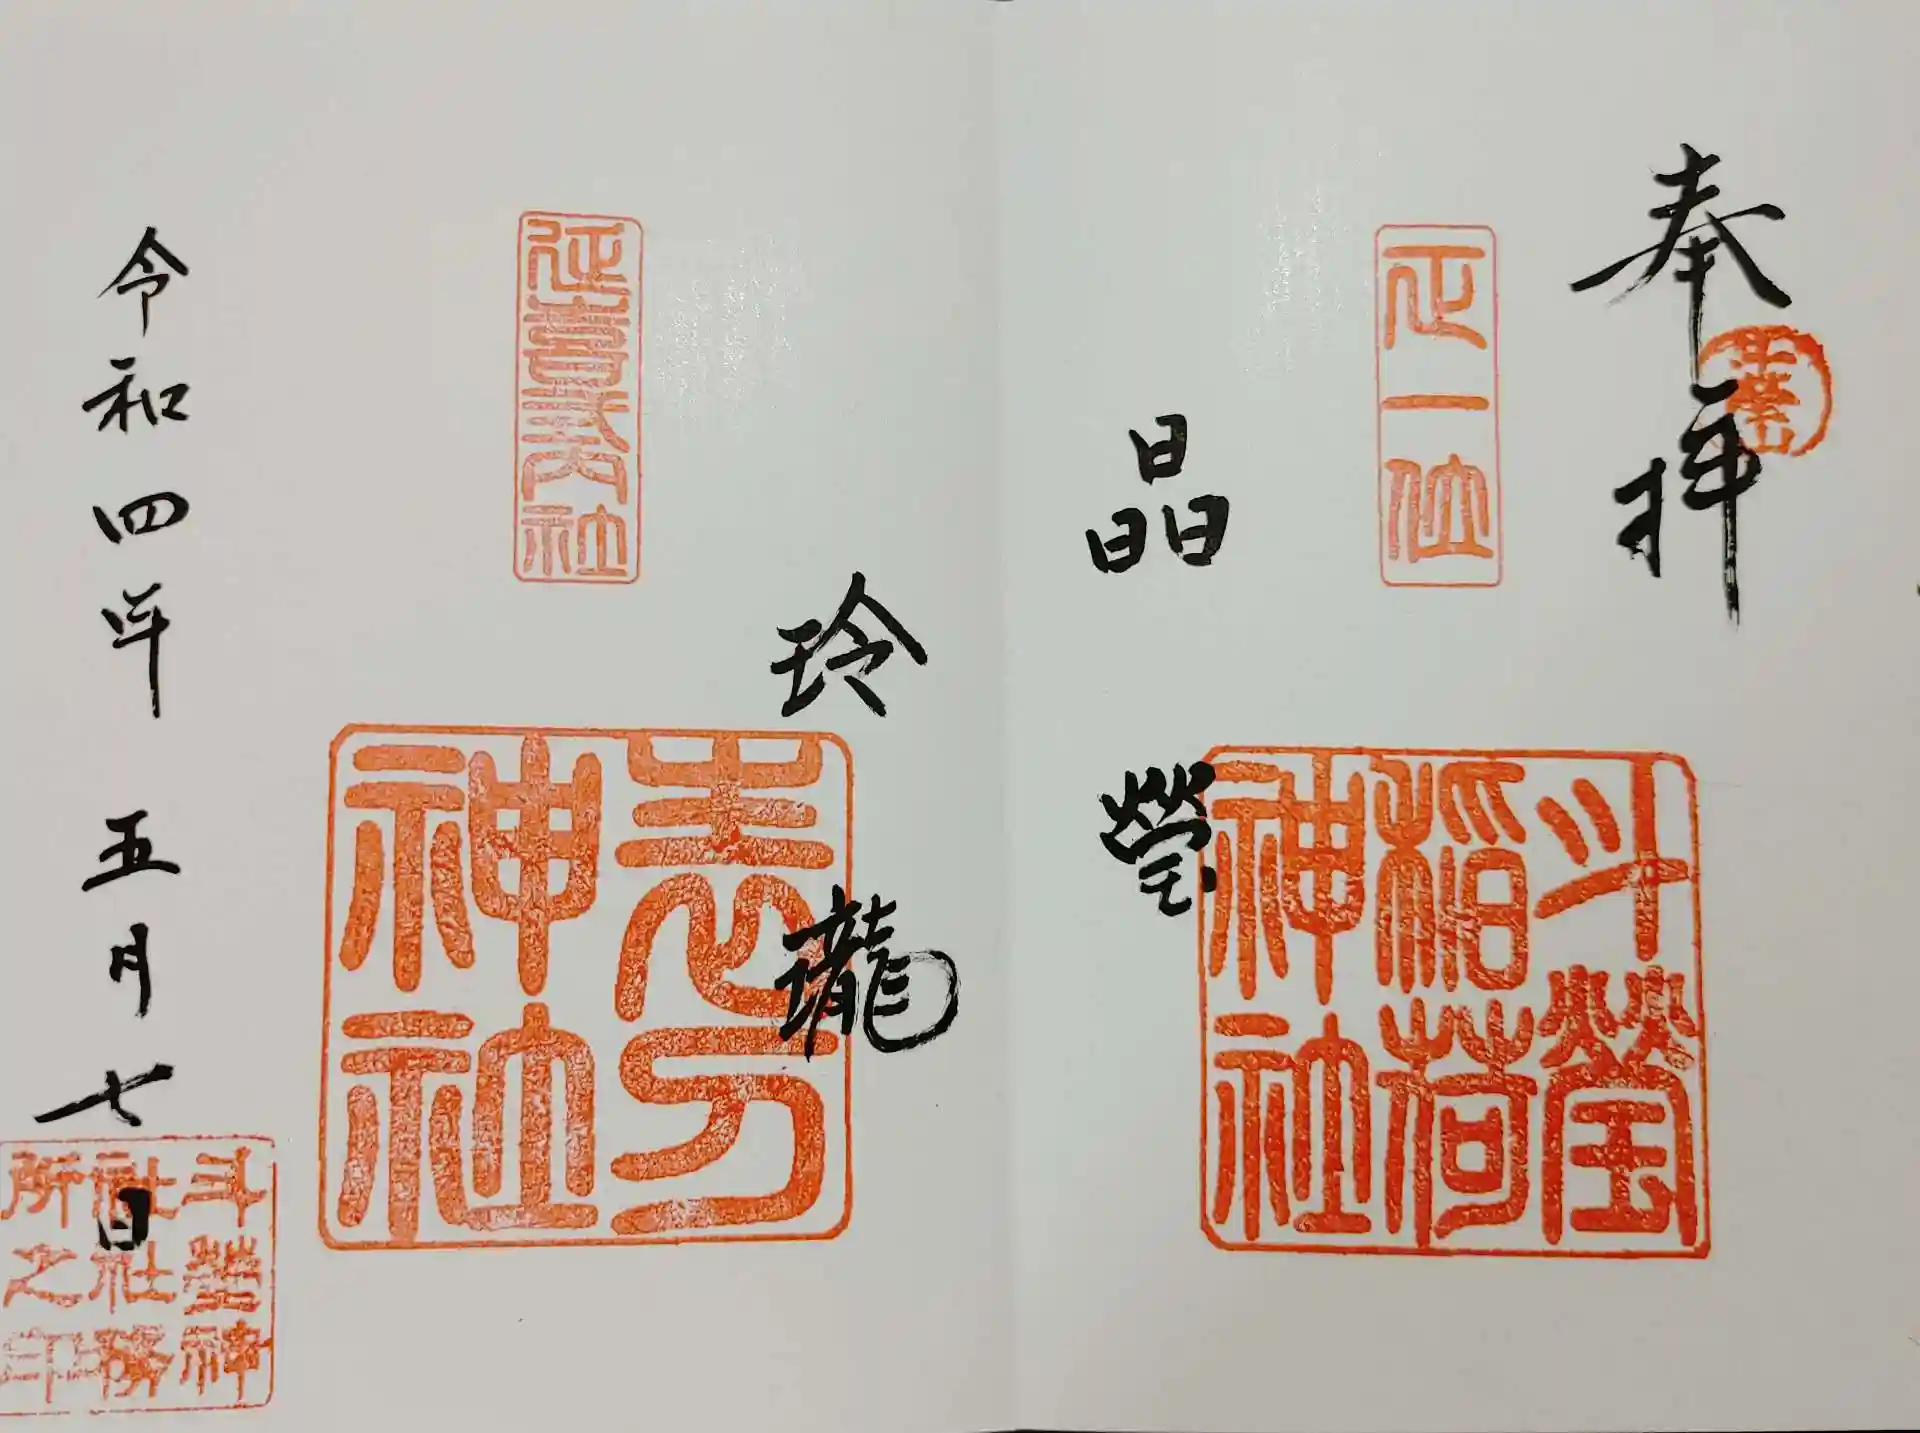 奉拝
斗瑩
正一位
斗瑩稲荷神社
晶瑩
玲瓏
延喜式内社
志分神社
令和四年五月七日
斗瑩神社社務所之印